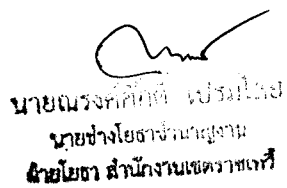 นายณรงค์ศักดิ์ เปรมไทย
นายช่างโยธาชำนาญงาน
ฝ่ายโยธา สำนักงานเขตราชเทวี